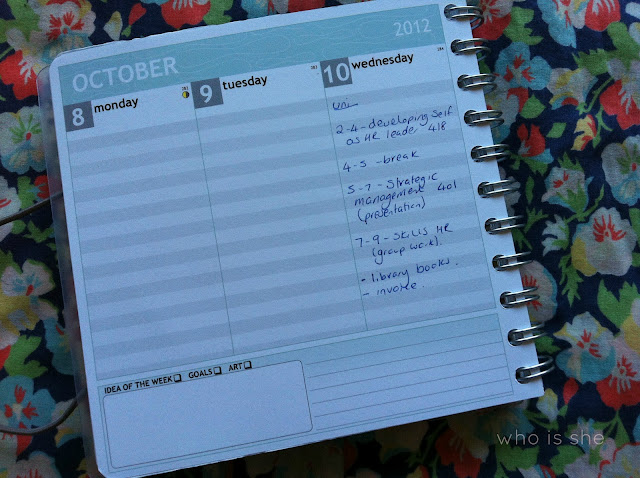 OCTOBER
2012
8 monday
282
9 tuesday
283
10 wednesday
284
uni
2-4-developing Self
as HR leader 418
4-5 -break
5-7-Strategic
management 401
(presentation)
7-9-Skills HR
(group work).
- library books.
- invoice.
IDEA OF THE WEEK GOALS ART
who is she